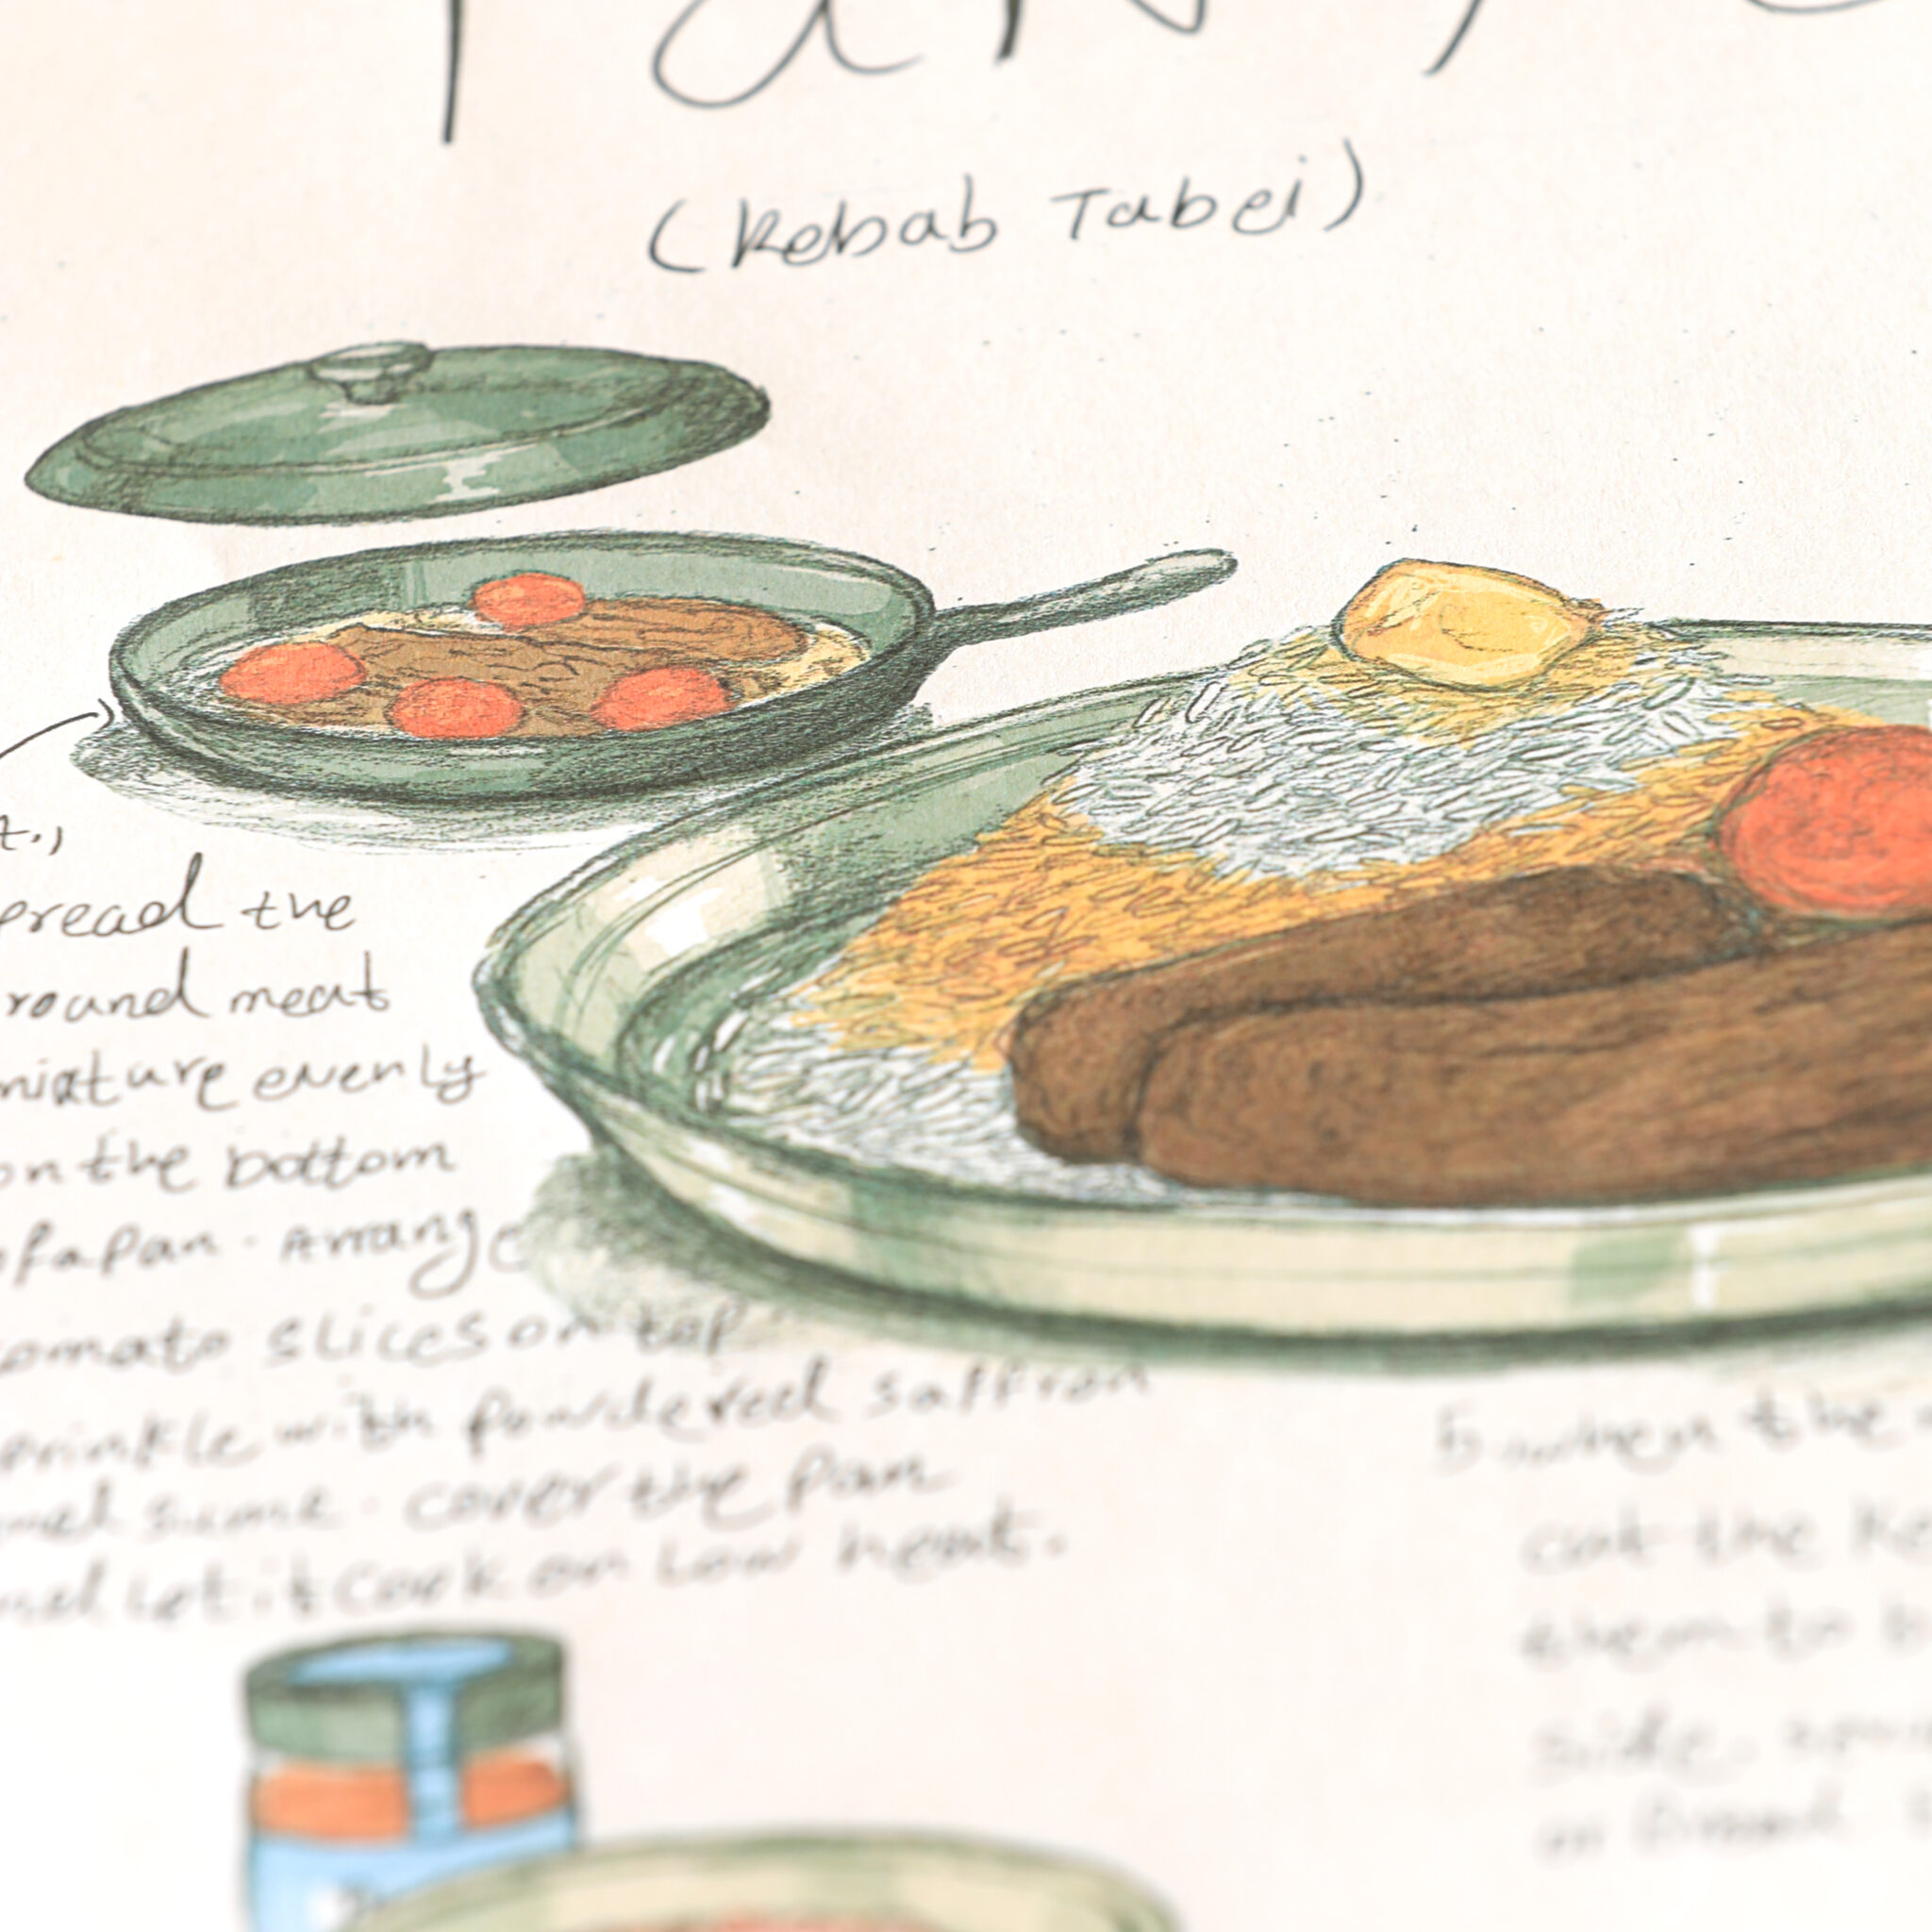 (Kebab Tabei)
t.,
pread the
round meat
mixture evenly
on the bottom
of a Pan. Arrange
omato slices on top
prinkle with powdered saffron
and sumac. cover the pan
and let it cook on low heat.
5. when the
cut the Ke
them to
side.
or bread.